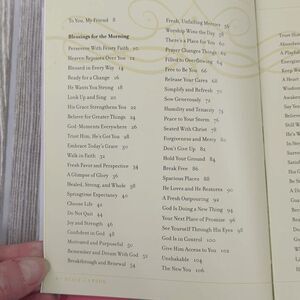 To You, My Friend 8
Blessings for the Morning
Persevere With Feisty Faith 10
Heaven Rejoices Over You 12
Blessed in Every Way 14
Ready for a Change 16
He Wants You Strong 18
Look Up and Sing 20
His Grace Strengthens You 22
Believe for Greater Things 24
God-Moments Everywhere 26
Trust Him, He's Got You 28
Embrace Today's Grace 30
Walk in Faith 32
Fresh Favor and Perspective 34
A Glimpse of Glory 36
Healed, Strong, and Whole 38
Springtime Expectancy 40
Choose Life 42
Do Not Quit 44
Joy and Strength 46
Confident in God 48
Motivated and Purposeful 50
Remember and Dream With God 52
Breakthrough and Renewal 54
Fresh, Unfailing Mercies 56
Worship Wins the Day 58
There's a Place for You 60
Prayer Changes Things 62
Filled to Overflowing 64
Free to Be You 66
Release Your Cares 68
Simplify and Refresh 70
Sow Generously 72
Humility and Tenacity 74
Peace to Your Storm 76
Seated With Christ 78
Forgiveness and Mercy 80
Don't Give Up 82
Hold Your Ground 84
Break Free 86
Spacious Places 88
He Loves and He Restores 90
A Fresh Outpouring 92
God Is Doing a New Thing 94
Your Next Place of Promise 96
See Yourself Through His Eyes 98
God Is in Control 100
Give Him Access to You 102
Unshakable 104
The New You 106